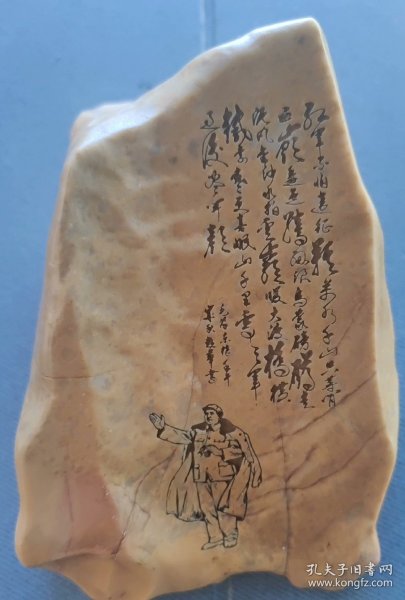 红军不怕远征難万水千山只等闲
五嶺逶迤騰细浪乌蒙磅礴走
泥丸金沙水拍雲崖暖大渡橋横
鐵索寒更喜岷山千里雪三军
过後尽开顏
孔夫子旧书网
www.kongfz.com